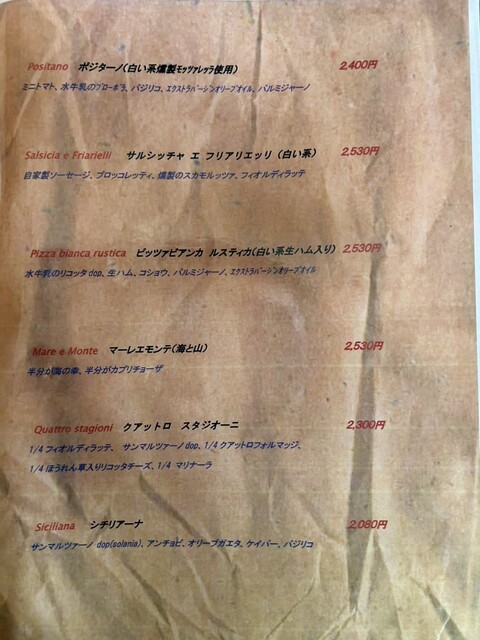 Positano ポジターノ(白い系燻製ﾓｯﾂｧﾚｯﾗ使用) 2,400円
ミニトマト、水牛乳のﾌﾟﾛｰﾎﾞﾗ、バジリコ、ｴｸｽﾄﾗﾊﾞｰｼﾞﾝオリーブオイル、パルミジャーノ
Salsicia e Friarielli サルシッチャ エ フリアリエッリ (白い系) 2,530円
自家製ソーセージ、ブロッコレッティ、燻製のスカモルッツァ、フィオルディラッテ
Pizza bianca rustica ピッツァビアンカ ルスティカ(白い系生ハム入り) 2,530円
水牛乳のリコッタdop、生ハム、コショウ、パルミジャーノ、ｴｸｽﾄﾗﾊﾞｰｼﾞﾝｵﾘｰﾌﾞｵｲﾙ
Mare e Monte マーレエモンテ(海と山) 2,530円
半分が海の幸、半分がカプリチョーザ
Quattro stagioni クアットロ スタジオーニ 2,300円
1/4フィオルディラッテ、 サンマルツァーノdop、1/4クアットロフォルマッジ、
1/4ほうれん草入りリコッタチーズ、1/4 マリナーラ
Siciliana シチリアーナ 2,080円
サンマルツァーノ dop(solania)、アンチョビ、オリーブガエタ、ケイパー、バジリコ